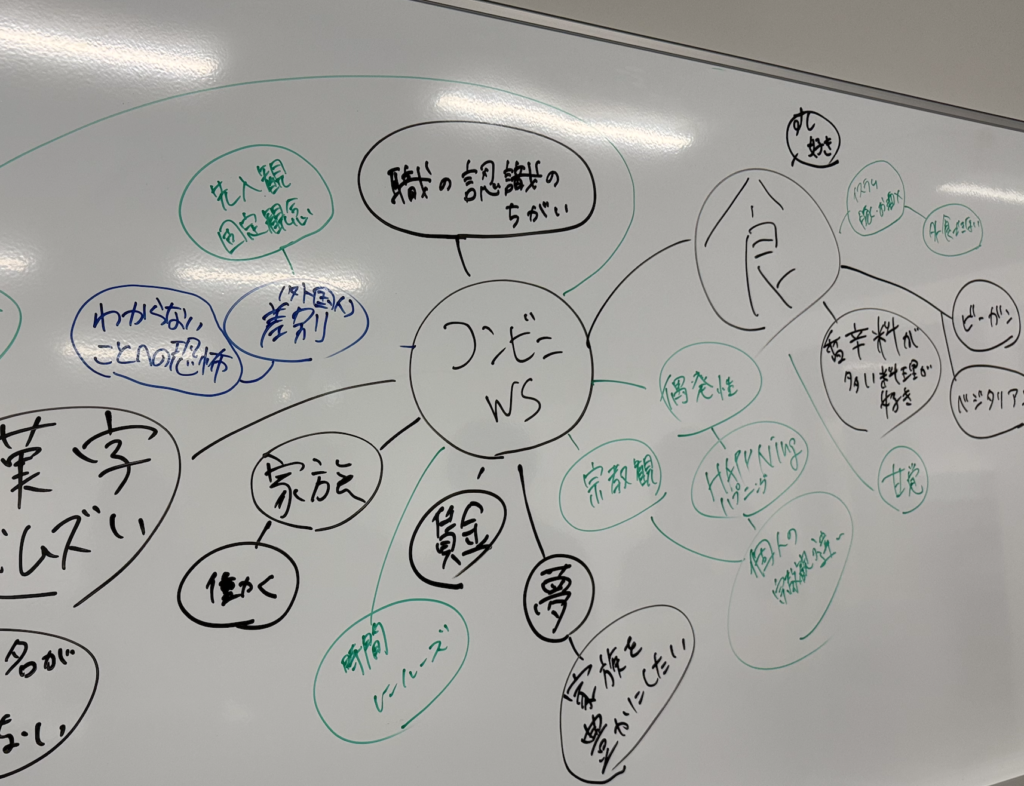 すし
好き
食
先入観
固定観念
職の認識の
ちがい
(外国人)
差別
わからない
ことへの恐怖
コンビニ
WS
外食できない
ビーガン
香辛料が
多い料理が
好き
ベジタリアン
偶発性
漢字
ムズい
家族
宗教観
HAPPNing
ハプニング
甘党
賃金
働かく
夢
個人の
時間
ルーズ
家族を
豊かにしたい
名が
ない